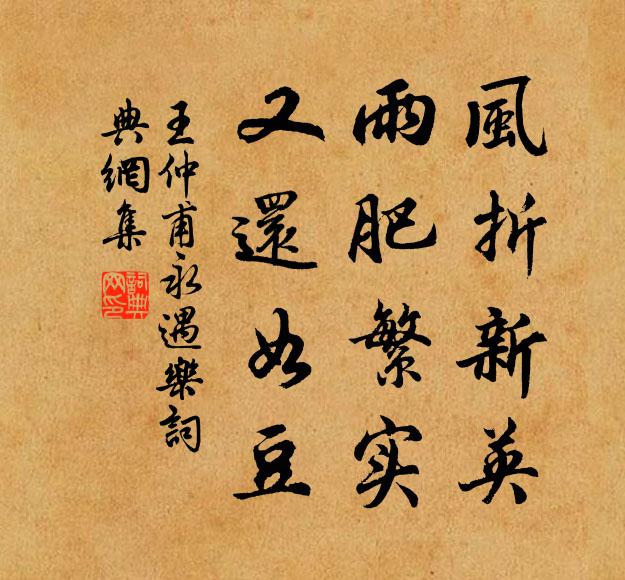 風折新英
雨肥繁实
又還如豆
王仲甫永遇樂詞
典網集
詞典网印